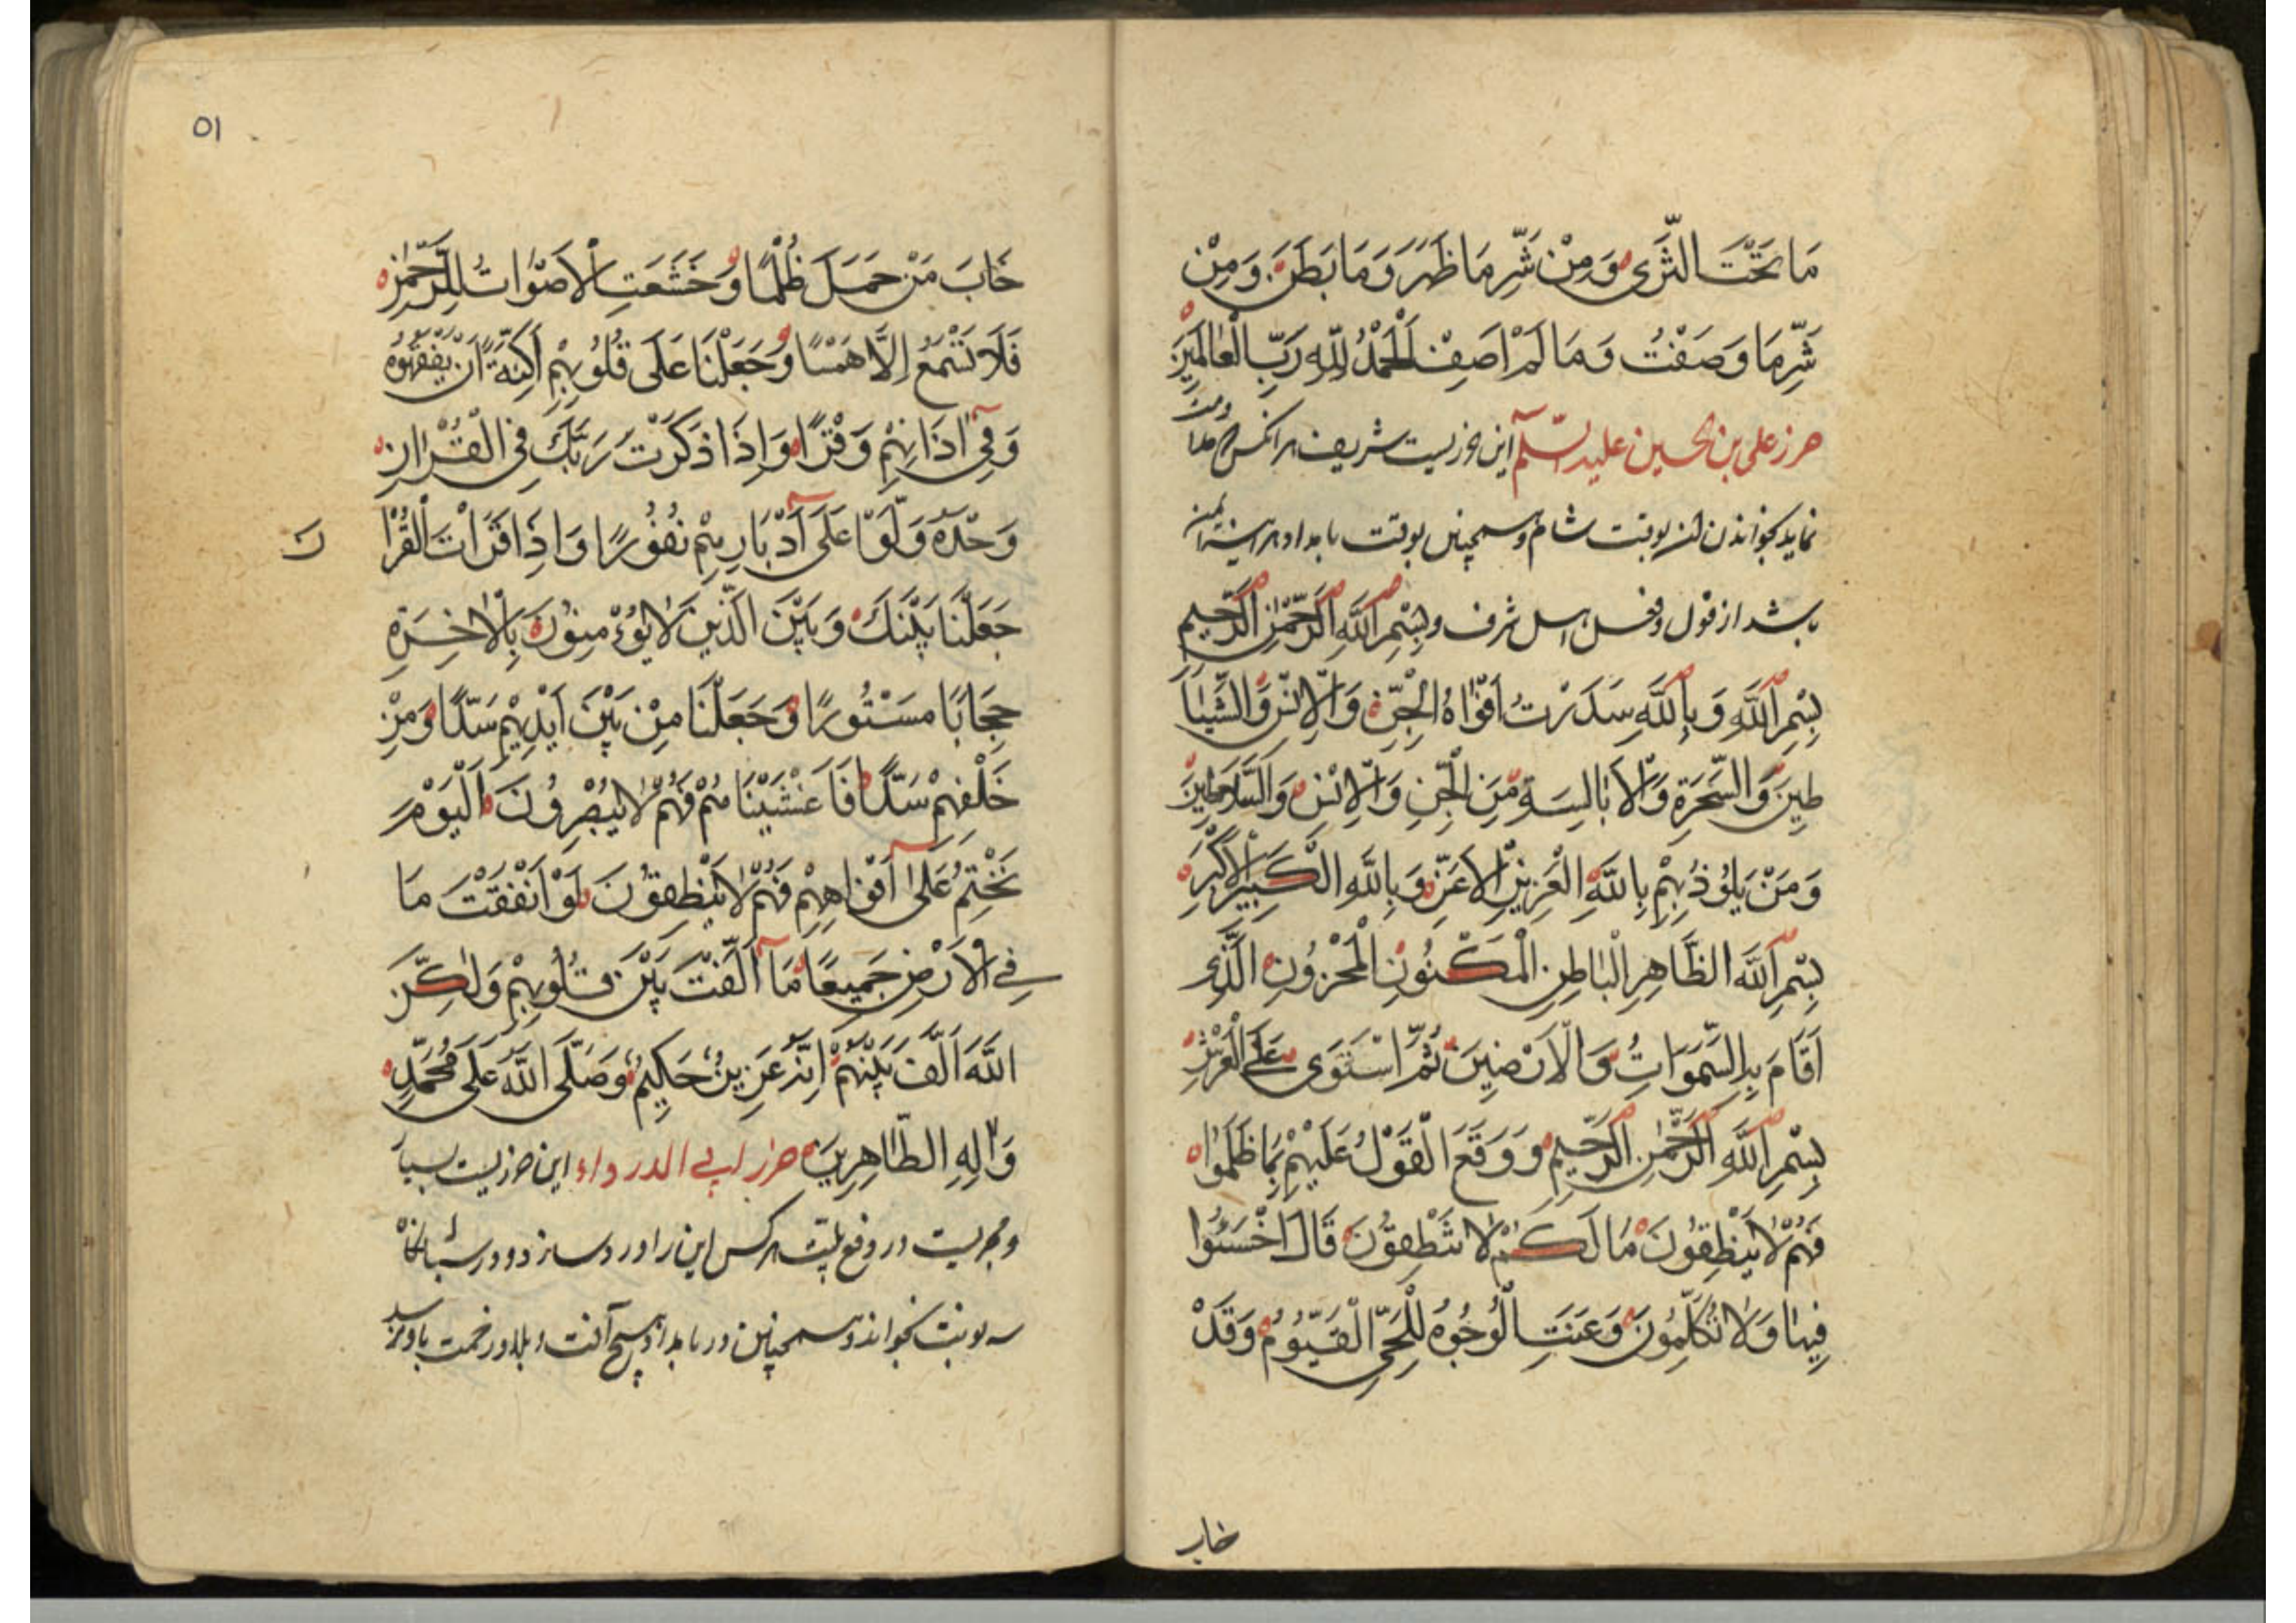 مَا تَحْتَ الثَّرَى وَمِنْ شَرِّ مَا ظَهَرَ وَمَا بَطَنَ وَمِنْ
شَرِّ مَا وَصَفْتُ وَمَا لَمْ اَصِفْ اَلْحَمْدُ لِلّٰهِ رَبِّ الْعَالَمِينَ
حرز علی بن الحسین علیه السلام این حرزیست شریف هرانکس
نماید بخواندن بوقت شام و همچنین بوقت بامداد
باشد از قول و شرف و بِسْمِ اللّٰهِ الرَّحْمٰنِ الرَّحِيمِ
بِسْمِ اللّٰهِ وَ بِاللّٰهِ سَدَدْتُ اَفْوَاهَ الْجِنِّ وَالْاِنْسِ وَالشَّيَا
طِينِ وَالسَّحَرَةِ وَالْاَبَالِسَةِ مِنَ الْجِنِّ وَالْاِنْسِ وَالسَّلَاطِينَ
وَمَنْ يَلُوذُ بِهِمْ بِاللّٰهِ الْعَزِيزِ الْاَعَزِّ وَبِاللّٰهِ الْكَبِيرِ الْاَكْبَرِ
بِسْمِ اللّٰهِ الظَّاهِرِ الْبَاطِنِ الْمَكْنُونِ الْمَخْزُونِ الَّذِى
اَقَامَ بِهِ السَّمٰوَاتِ وَالْاَرَضِينَ ثُمَّ اسْتَوَى عَلَى الْعَرْشِ
بِسْمِ اللّٰهِ الرَّحْمٰنِ الرَّحِيمِ وَ وَقَعَ الْقَوْلُ عَلَيْهِمْ بِمَا ظَلَمُوا
فَهُمْ لَا يَنْطِقُونَ مَا لَكُمْ لَا تَنْطِقُونَ قَالَ اخْسَئُوا
فِيهَا وَلَا تُكَلِّمُونَ وَعَنَتِ الْوُجُوهُ لِلْحَىِّ الْقَيُّومِ وَقَدْ
خاب
٥١
خَابَ مَنْ حَمَلَ ظُلْمًا وَخَشَعَتِ الْاَصْوَاتُ لِلرَّحْمٰنِ
فَلَا تَسْمَعُ اِلَّا هَمْسًا وَجَعَلْنَا عَلَى قُلُوبِهِمْ اَكِنَّةً اَنْ يَفْقَهُوهُ
وَفِى اٰذَانِهِمْ وَقْرًا وَاِذَا ذَكَرْتَ رَبَّكَ فِى الْقُرْاٰنِ
وَحْدَهُ وَلَّوْا عَلَى اَدْبَارِهِمْ نُفُورًا وَاِذَا قَرَاْتَ الْقُرْا
جَعَلْنَا بَيْنَكَ وَبَيْنَ الَّذِينَ لَا يُؤْمِنُونَ بِالْاٰخِرَةِ
حِجَابًا مَسْتُورًا وَجَعَلْنَا مِنْ بَيْنِ اَيْدِيهِمْ سَدًّا وَمِنْ
خَلْفِهِمْ سَدًّا فَاَغْشَيْنَاهُمْ فَهُمْ لَا يُبْصِرُونَ اَلْيَوْمَ
نَخْتِمُ عَلَى اَفْوَاهِهِمْ فَهُمْ لَا يَنْطِقُونَ لَوْ اَنْفَقْتَ مَا
فِى الْاَرْضِ جَمِيعًا مَا اَلَّفْتَ بَيْنَ قُلُوبِهِمْ وَلٰكِنَّ
اللّٰهَ اَلَّفَ بَيْنَهُمْ اِنَّهُ عَزِيزٌ حَكِيمٌ وَصَلَّى اللّٰهُ عَلَى مُحَمَّدٍ
وَاٰلِهِ الطَّاهِرِينَ حرز ابی الدرداء این حرزیست بسیا
و مجربست در دفع بلیت هرکس این را ورد سازد و در
سه نوبت بخواند و همچنین در بامداد هیچ آفت و بلا و زحمت باو نرسد